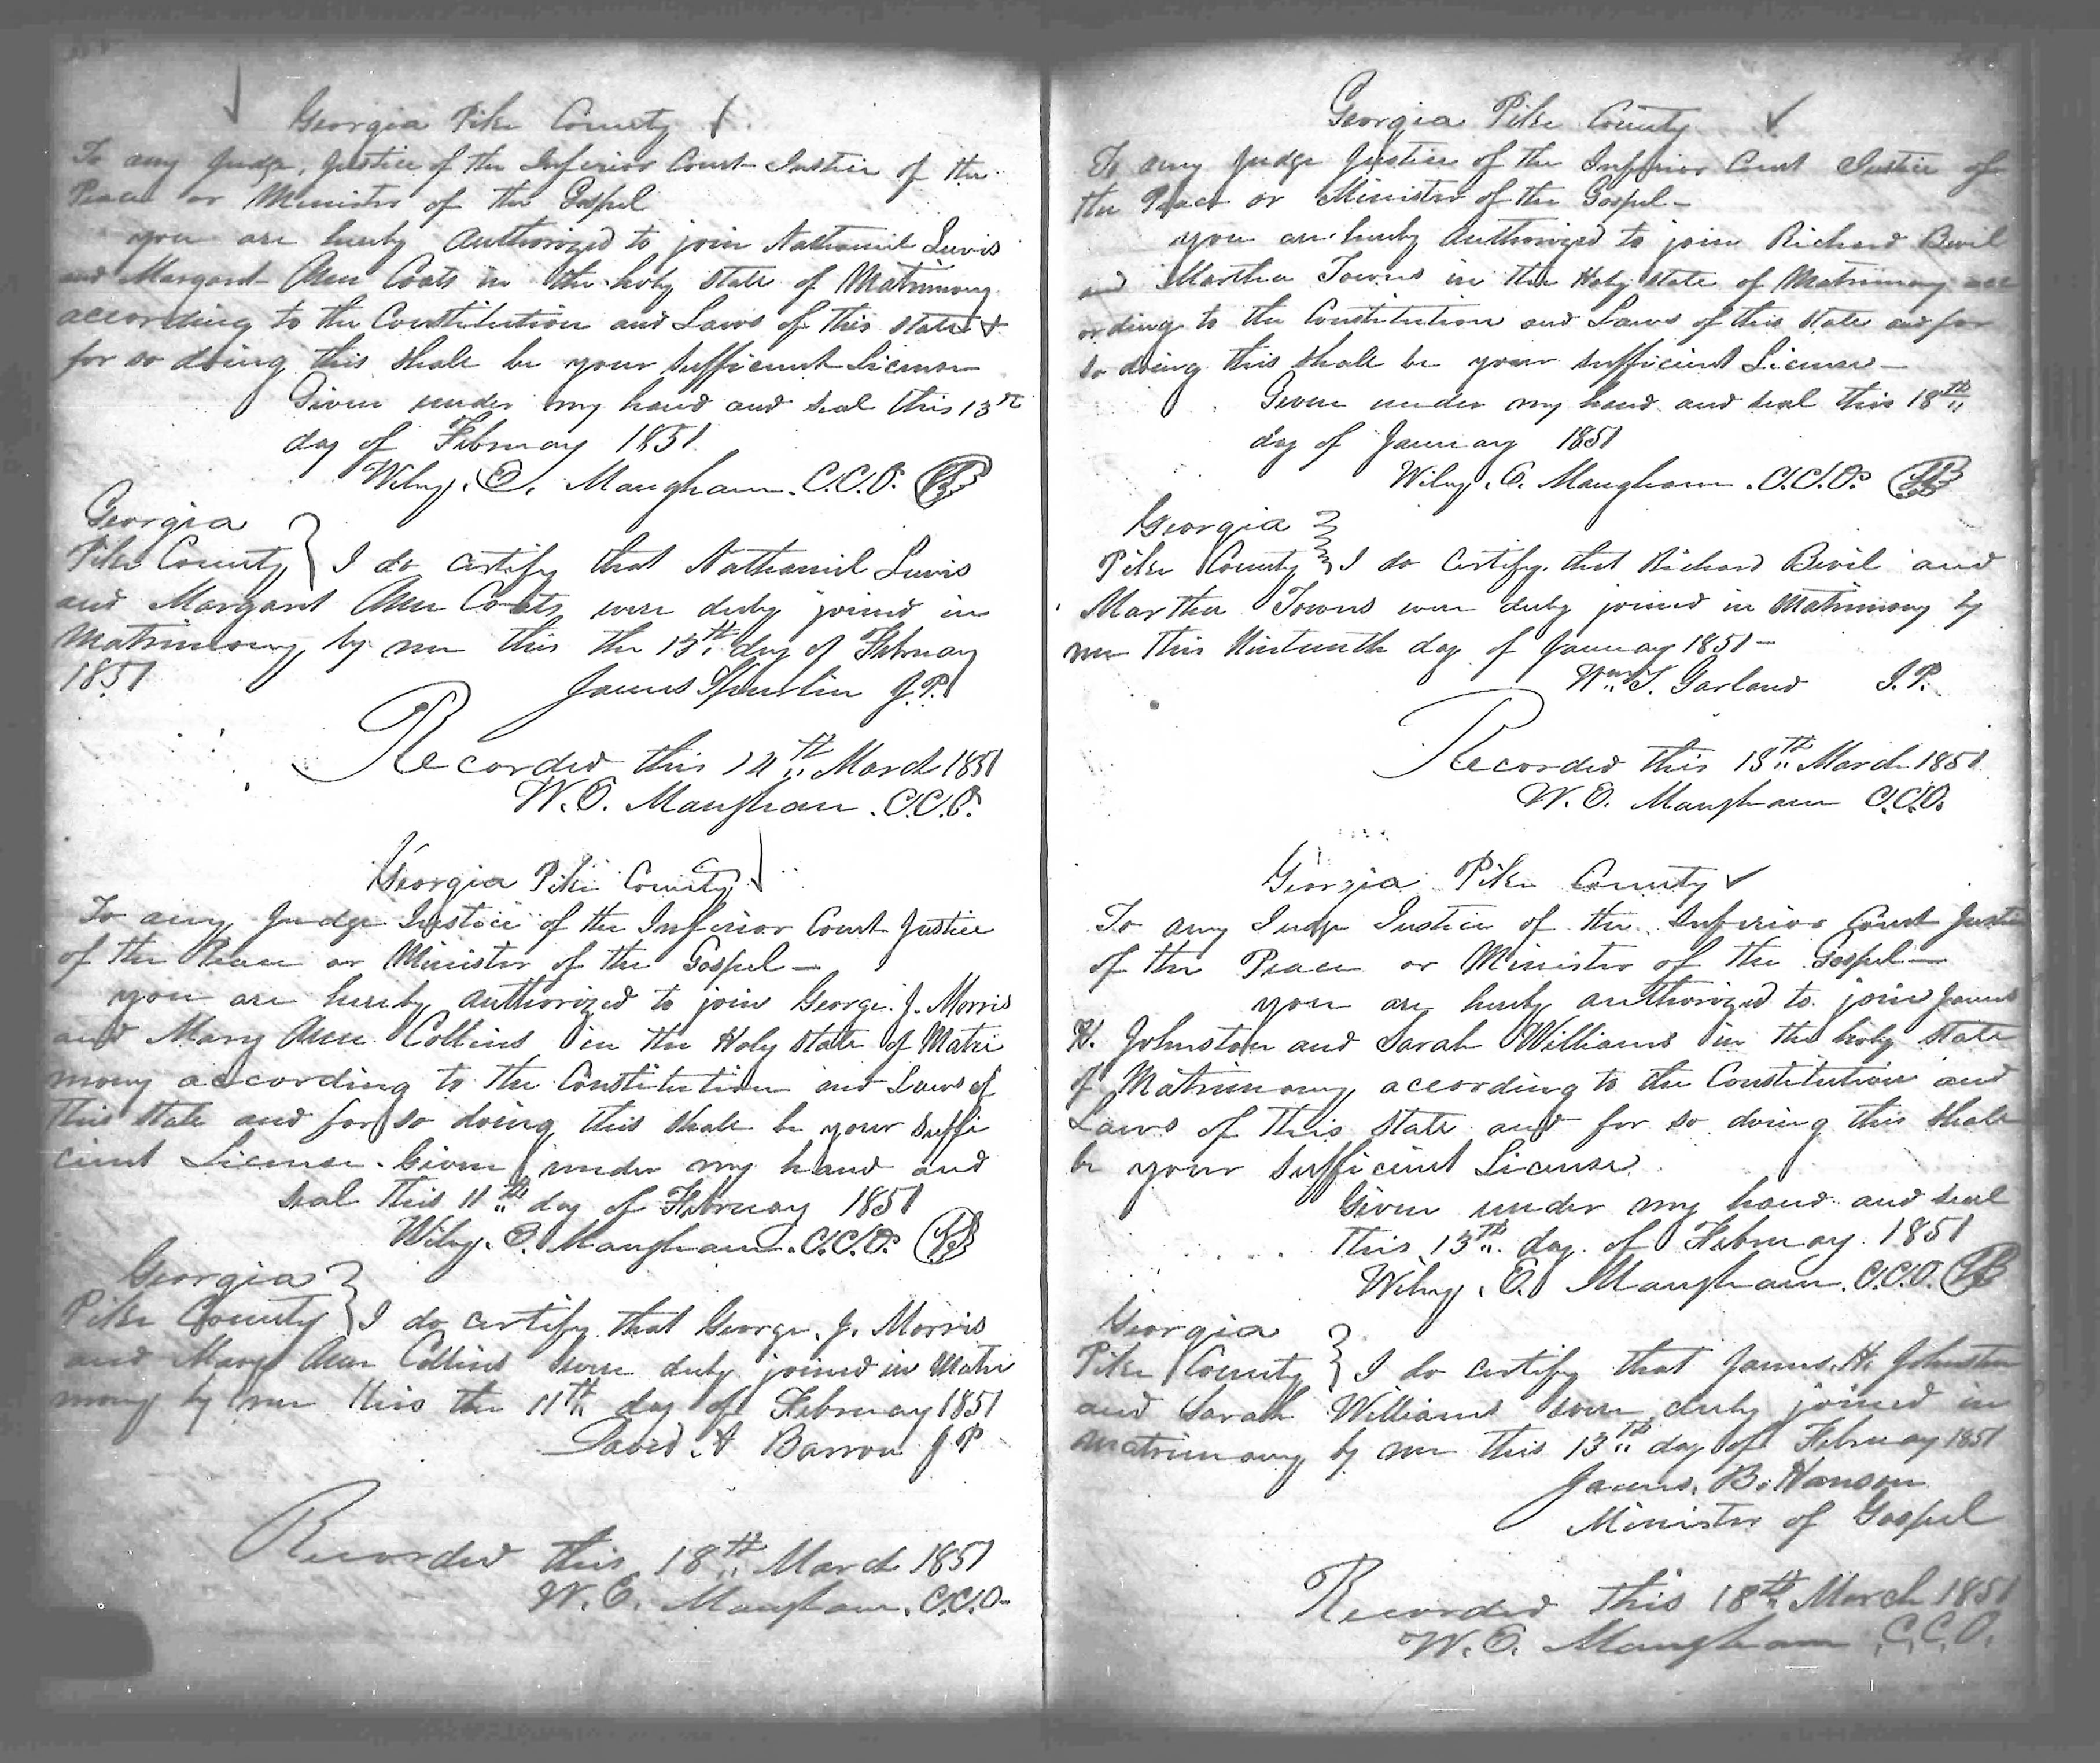 Georgia Pike County
To any Judge, Justice of the Inferior Court Justice of the
Peace or Minister of the Gospel
you are hereby Authorized to join Nathaniel Lewis
and Margaret Ann Coats in the holy state of Matrimony
according to the Constitution and Laws of this state &
for so doing this shall be your sufficient License
Given under my hand and seal this 13th
day of February 1851
Wiley. E. Mangham. C.C.O.
Georgia
Pike County } I do certify that Nathaniel Lewis
and Margaret Ann Coats were duly joined in
Matrimony by me this the 13th day of February
1851
James Spurlin J.P.
Recorded this 14th March 1851
W. E. Mangham. C.C.O.
Georgia Pike County
To any Judge Justice of the Inferior Court Justice
of the Peace or Minister of the Gospel —
you are hereby authorized to join George. J. Morris
and Mary Ann Collins in the Holy state of Matri
mony according to the Constitution and Laws of
this state and for so doing this shall be your suffi
cient License. Given under my hand and
seal this 11th day of February 1851
Wiley. E. Mangham. C.C.O.
Georgia
Pike County } I do certify that George. J. Morris
and Mary Ann Collins were duly joined in Matri
mony by me this the 11th day of February 1851
David A Barron J P
Recorded this 18th March 1851
W. E. Mangham. C.C.O.
Georgia Pike County
To any Judge Justice of the Inferior Court Justice of
the Peace or Minister of the Gospel —
you are hereby Authorized to join Richard Bevil
and Martha Towns in the Holy state of Matrimony acc
ording to the Constitution and Laws of this state and for
so doing this shall be your sufficient License —
Given under my hand and seal this 18th
day of January 1851
Wiley. E. Mangham. C.C.O.
Georgia
Pike County } I do certify that Richard Bevil and
Martha Towns were duly joined in Matrimony by
me this Nineteenth day of January 1851 —
Wm. T. Garland J.P.
Recorded this 18th March 1851
W. E. Mangham C.C.O.
Georgia Pike County
To any Judge Justice of the Inferior Court Justice
of the Peace or Minister of the Gospel —
you are hereby authorized to join James
H. Johnston and Sarah Williams in the holy state
of Matrimony, according to the Constitution and
Laws of this state and for so doing this shall
be your sufficient License
Given under my hand and seal
this 13th day of February 1851
Wiley. E. Mangham. C.C.O.
Georgia
Pike County } I do certify that James. H. Johnston
and Sarah Williams were duly joined in
Matrimony by me this 13th day of February 1851
James. B. Hanson
Minister of Gospel
Recorded this 18th March 1851
W. E. Mangham C.C.O.